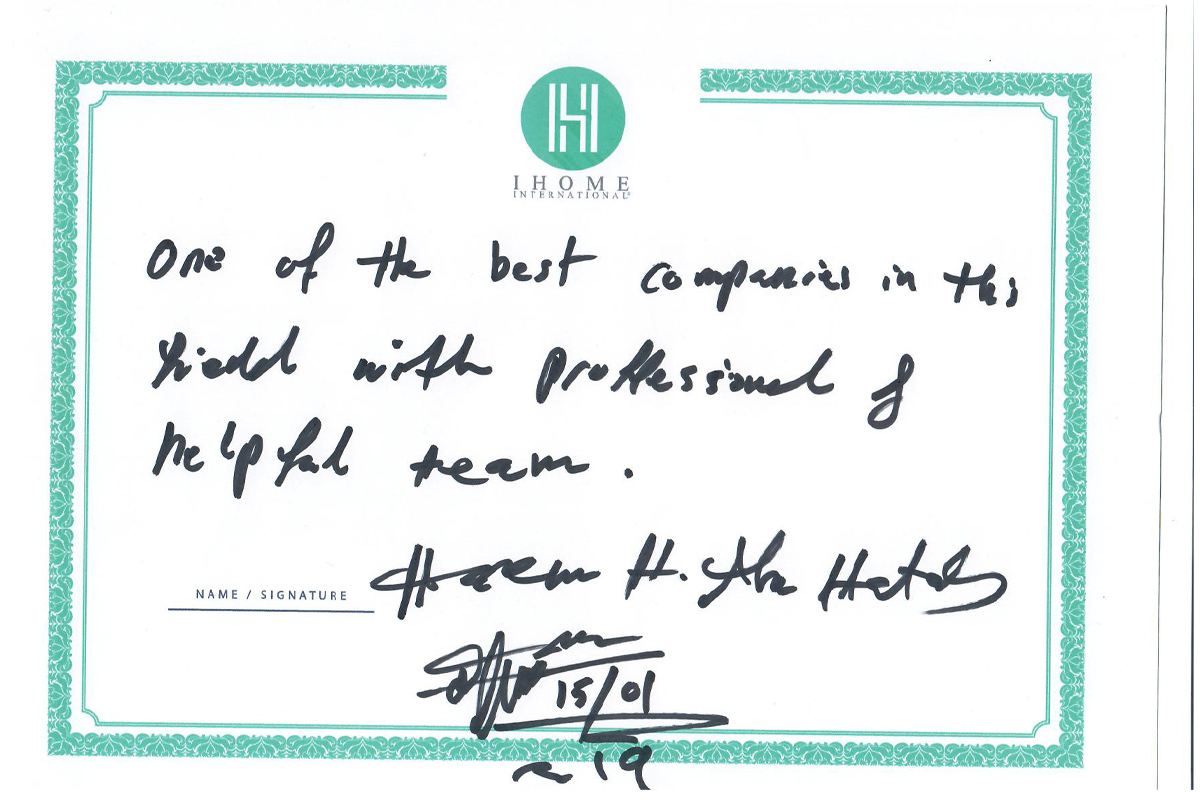 IHOME
INTERNATIONAL
One of the best companies in this
field with proffessional &
helpful team.
NAME / SIGNATURE
H. Abu
15/01
19